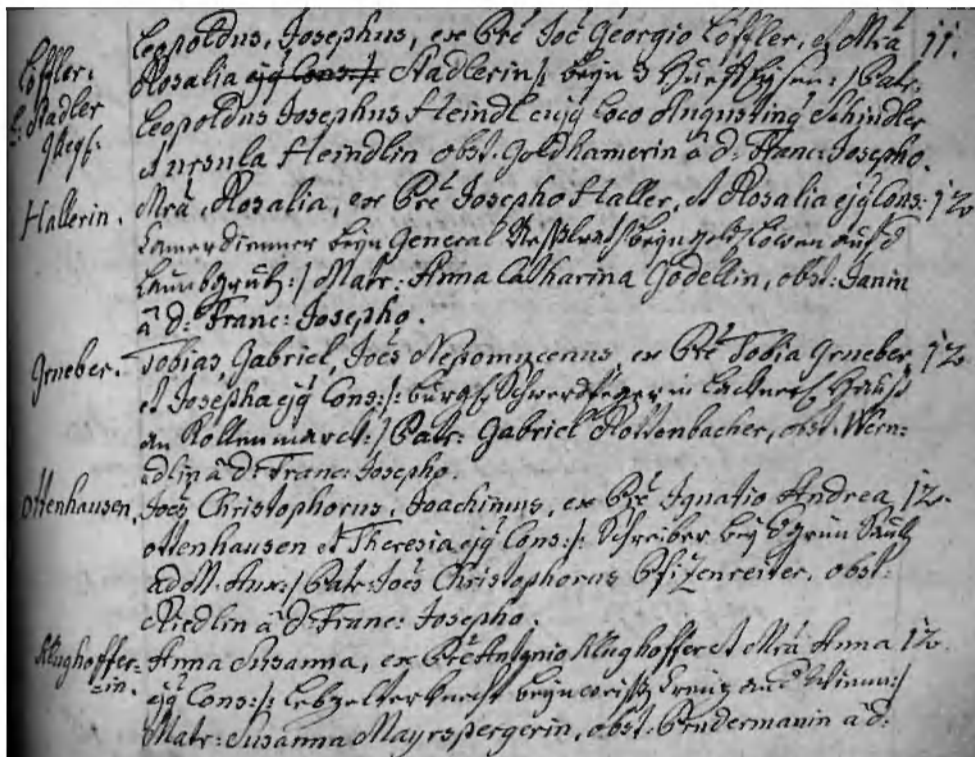 Löffler. Leopoldus, Josephus, ex Pre Joe Georgio Löffler, et Mra 11.
Stadler Rosalia ejq Cons:/: Stadlerin/: beyn 3 :/ Patr:
Leopoldus Josephus Heindl ejq loco Augustinq Schindler
et Ursula Heindlin obst. Goldhamerin à d: Franc: Josepho.
Hallerin. Mra, Rosalia, ex Pre Josepho Haller, et Rosalia ejq Cons: 12
Camerdienner beyn General beyn Löwen auf d
:/ Matr: Anna Catharina Godellin, obst: Janin
à d: Franc: Josepho.
Grueber. Tobias, Gabriel, Joes Nepomucenus, ex Pre Tobia Grueber, 12
et Josepha ejq Cons:/: burgl. Schwerdtfeger in Hauß
an Kollenmarct:/ Patr: Gabriel Rottenbacher, obst. Wern:
dlin à d: Franc: Josepho.
Ottenhausen. Joes Christophorus, Joachimus, ex Pre Ignatio Andrea 12.
Ottenhausen et Theresia ejq Cons:/: Schreiber bey d grün
ad M. Aux:/ Patr: Joes Christophorus Pfizenreiter. obst:
Riedlin à d: Franc: Josepho.
Klughoffer= Anna Susanna, ex Pre Antonio Klughoffer et Mra Anna 12.
=in. ejq Cons:/: Lebzelterknecht beyn Creuz auf d Wienn:/
Matr: Susanna Mayrspergerin, obst: Brudermanin à d: